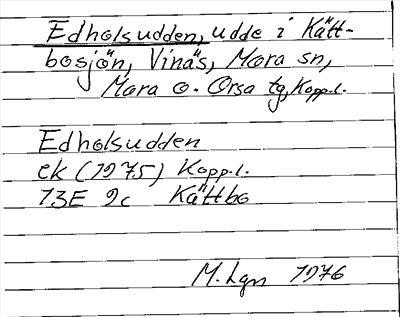 Edholsudden, udde i Kätt-
bosjön, Vinäs, Mora sn,
Mora o. Orsa tg, Kopp.l.
Edholsudden
ek (1975) Kopp.l.
13E 9c Kättbo
M. Lgn 1976